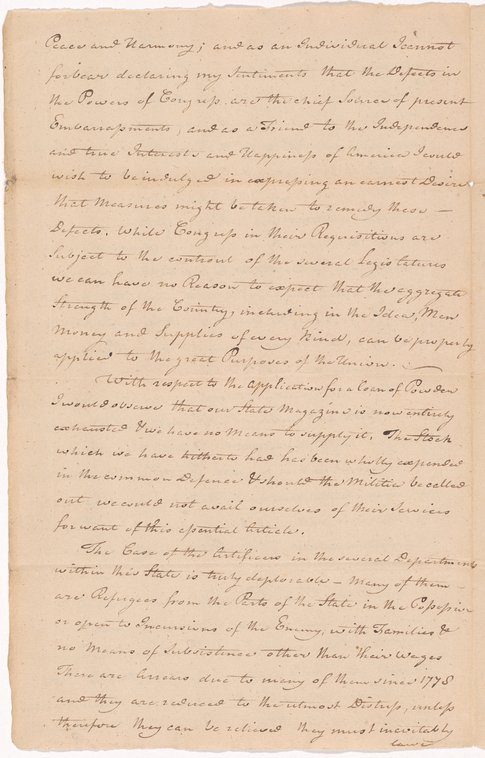 Peace and Harmony; and as an Individual I cannot
forbear declaring my Sentiments that the Defects in
the Powers of Congress are the chief Source of present
Embarrassments, and as a Friend to the Independence
and true Interests and Happiness of America I could
wish to be indulged in expressing an earnest Desire
that Measures might be taken to remedy these —
Defects. While Congress in their Requisitions are
Subject to the controul of the several Legislatures
we can have no Reason to expect that the aggregate
Strength of the Country, including in the Idea, Men
Money and Supplies of every kind, can be properly
applied to the great Purposes of the Union. —
With respect to the application for a loan of Powder
I would observe that our State Magazine is now entirely
exhausted & we have no Means to supply it. The Stock
which we have hitherto had has been wholly expended
in the common Defence & should the Militia be called
out we could not avail ourselves of their Services
for want of this essential Article.
The Case of the Artificers in the several Departments
within this State is truly deplorable — Many of them
are Refugees from the Parts of the State in the Possession
or open to Incursions of the Enemy, with Families &
no Means of Subsistence other than their Wages
There are Arrears due to many of them since 1778
and they are reduced to the utmost Distress, unless
therefore they can be relieved they must inevitably
leave